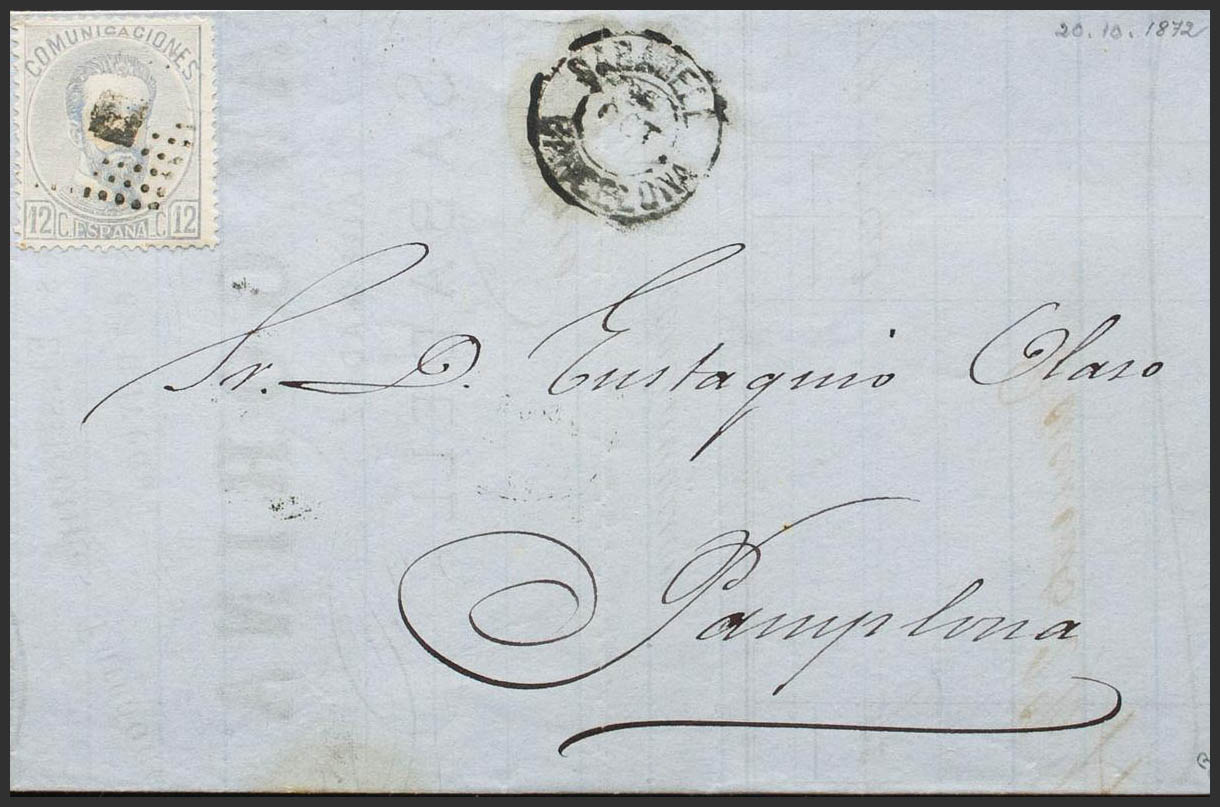 COMUNICACIONES
12 C. ESPANA C. 12
20.10.1872
SABADELL
BARCELONA
Sr. D. Eustaquio Olaso
Pamplona